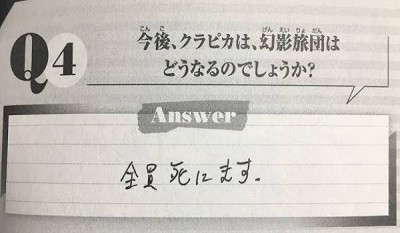 Q4
今後、クラピカは、幻影旅団は
どうなるのでしょうか?
Answer
全員死にます。